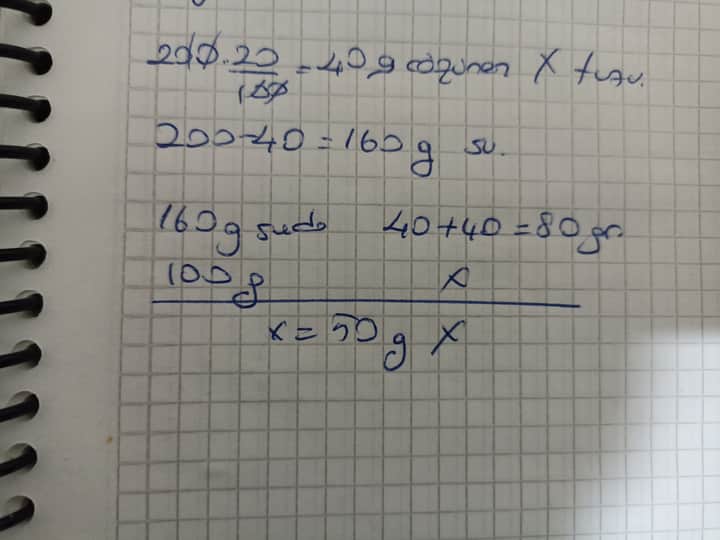 200.20/100 = 40 g çözünen X tuzu.
200-40=160g su.
160g suda 40+40=80gr
100g x
x=50g X